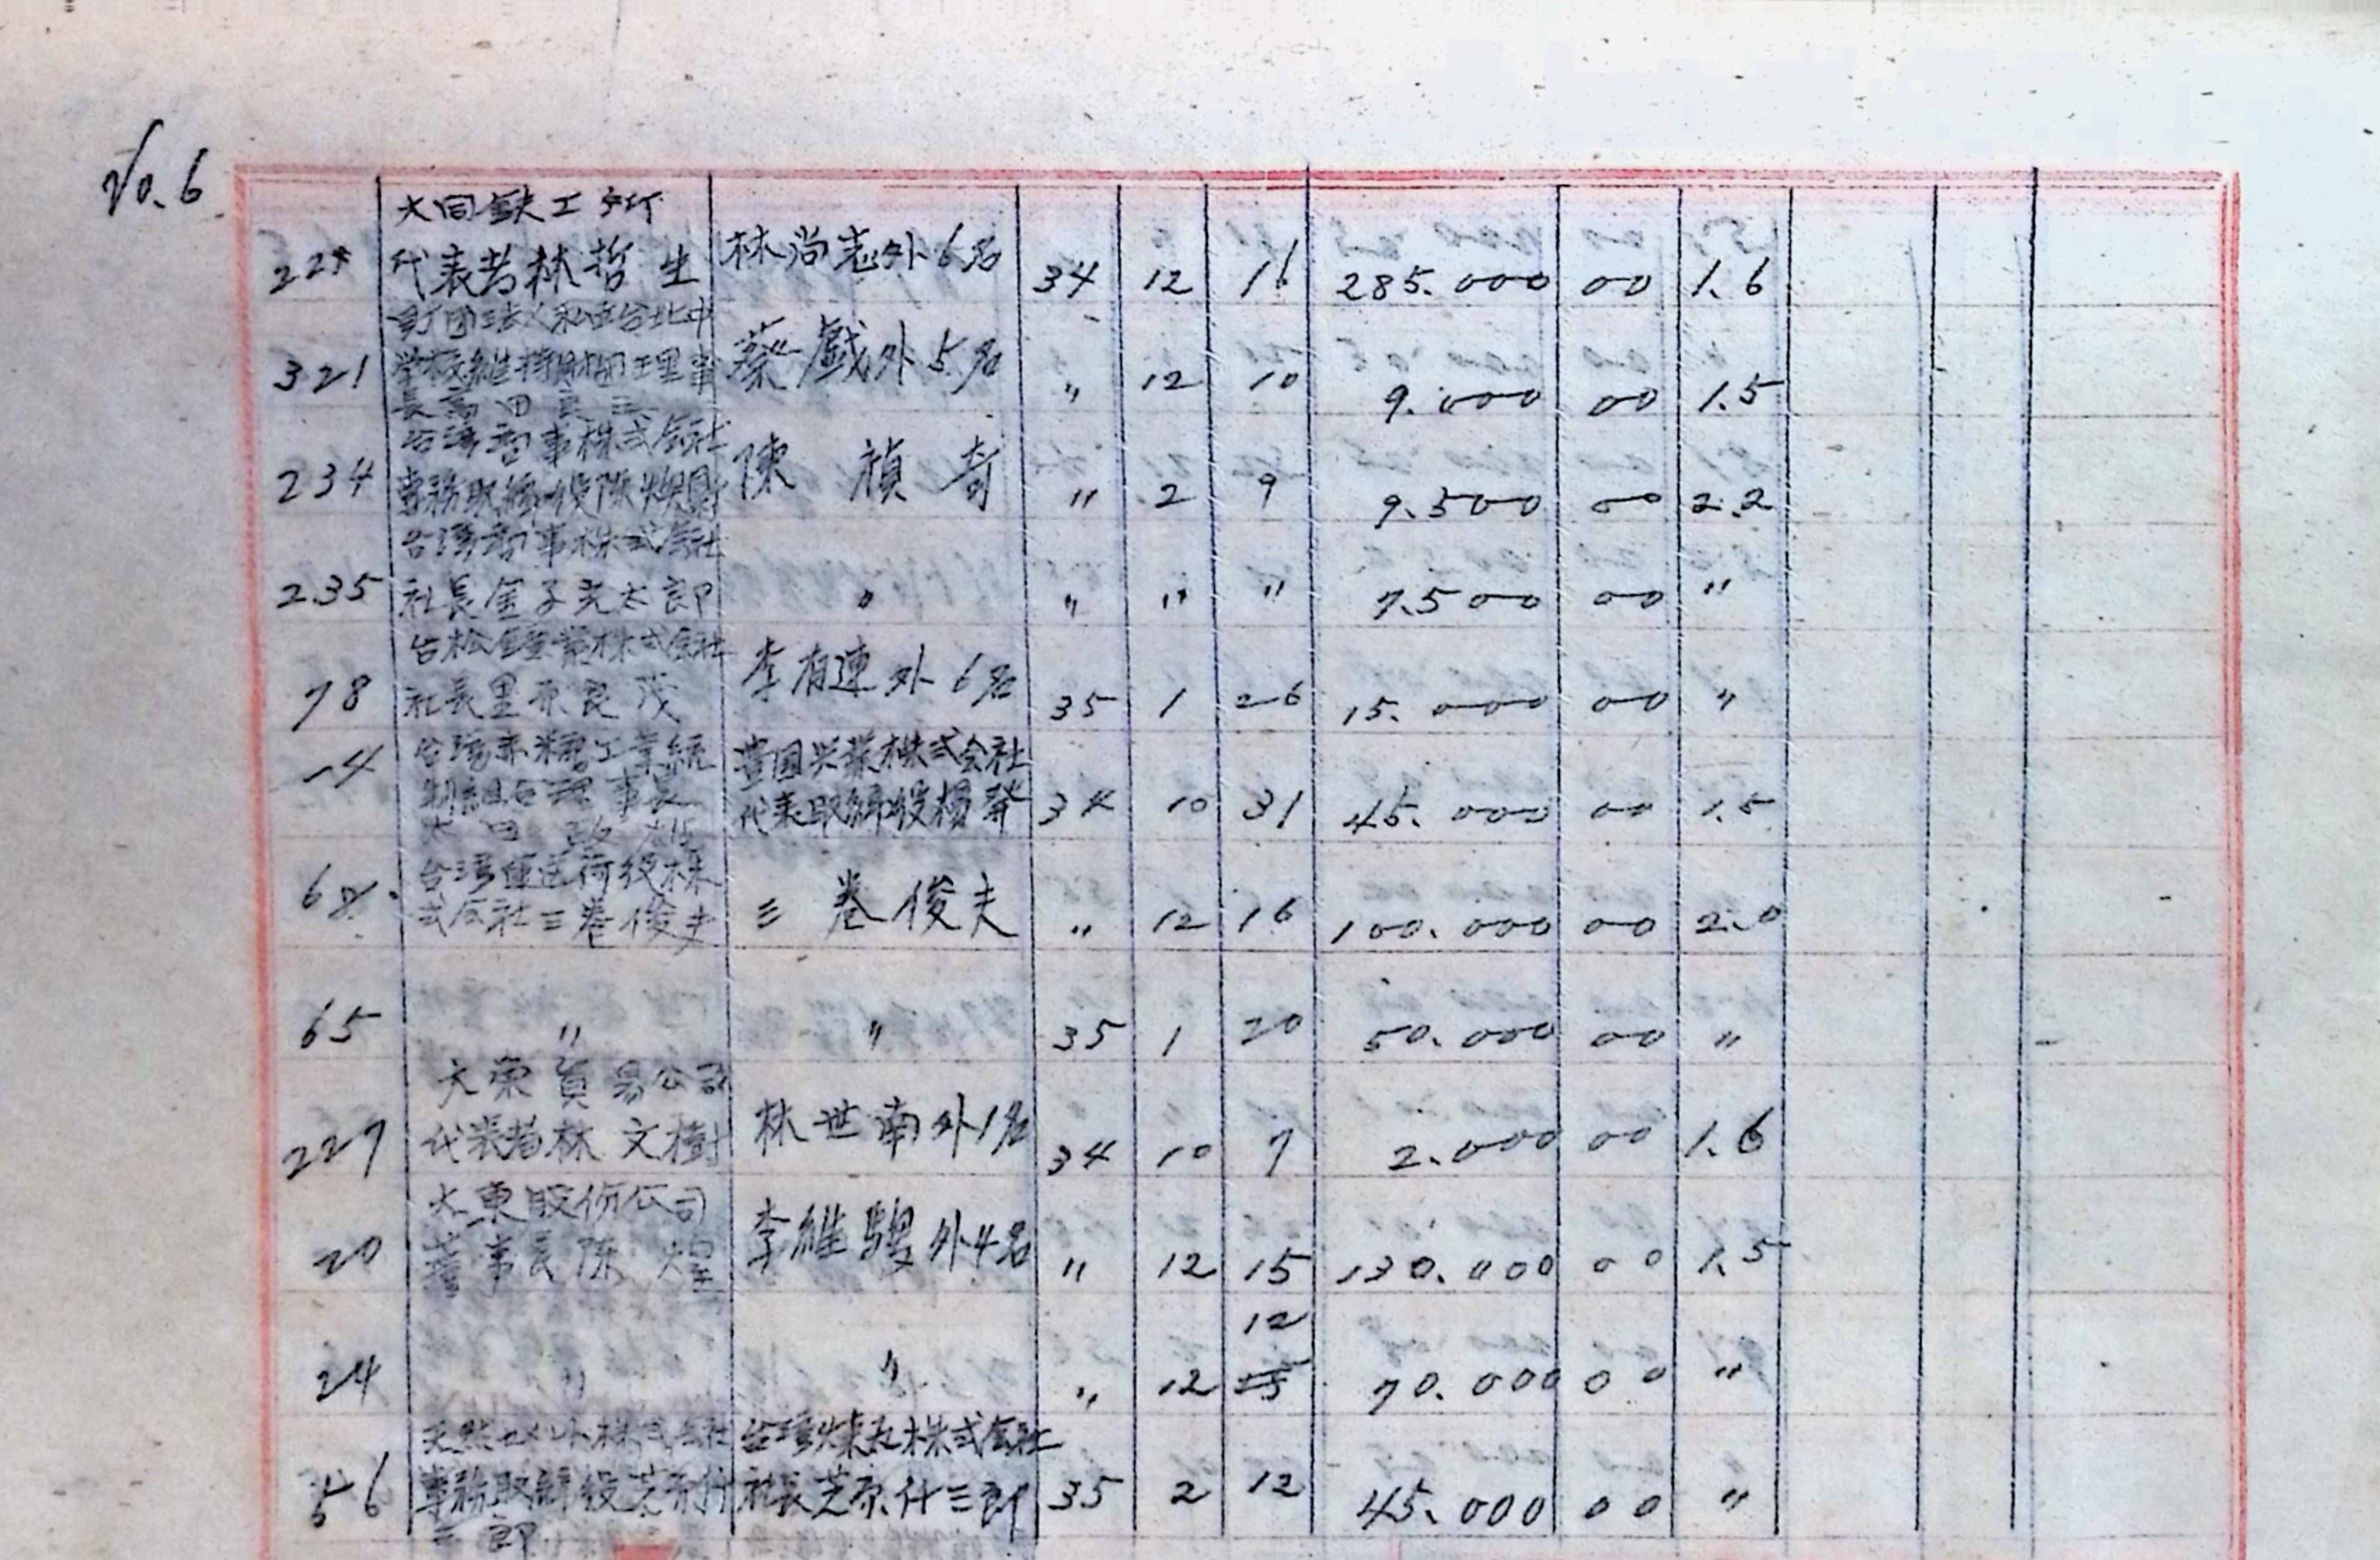 No. 6
大同鉄工所
代表者林哲生 林尚志外6名 34 12 16 285.000 00 1.6
財団法人私立台北中
321 学校維持財団理事 蔡戯外5名 〃 12 10 9.000 00 1.5
長高田良三
台湾商事株式会社
234 専務取締役陳 陳禎 〃 2 9 9.500 00 2.2
台湾商事株式会社
235 社長金子光太郎 〃 〃 〃 〃 7.500 00 〃
台松企業株式会社
78 社長里原良茂 李有連外6名 35 1 26 15.000 00 〃
14 台湾赤糖工業統 豊国興業株式会社
制組合理事長 代表取締役楊發 34 10 31 45.000 00 1.5
太田政雄
台湾運送荷役株
式会社三巻俊夫 三巻俊夫 〃 12 16 100.000 00 2.0
65 〃 〃 35 1 20 50.000 00 〃
大栄貿易公司
227 代表者林文樹 林世南外1名 34 10 7 2.000 00 1.6
大東股份公司
20 董事長陳煌 李維外4名 〃 12 15 130.000 00 1.5
12
24 〃 〃 〃 12 70.000 00 〃
天然 株式会社 台湾煉瓦株式会社
56 専務取締役芝原仔 社長芝原仔三郎 35 2 12 45.000 00 〃
三郎